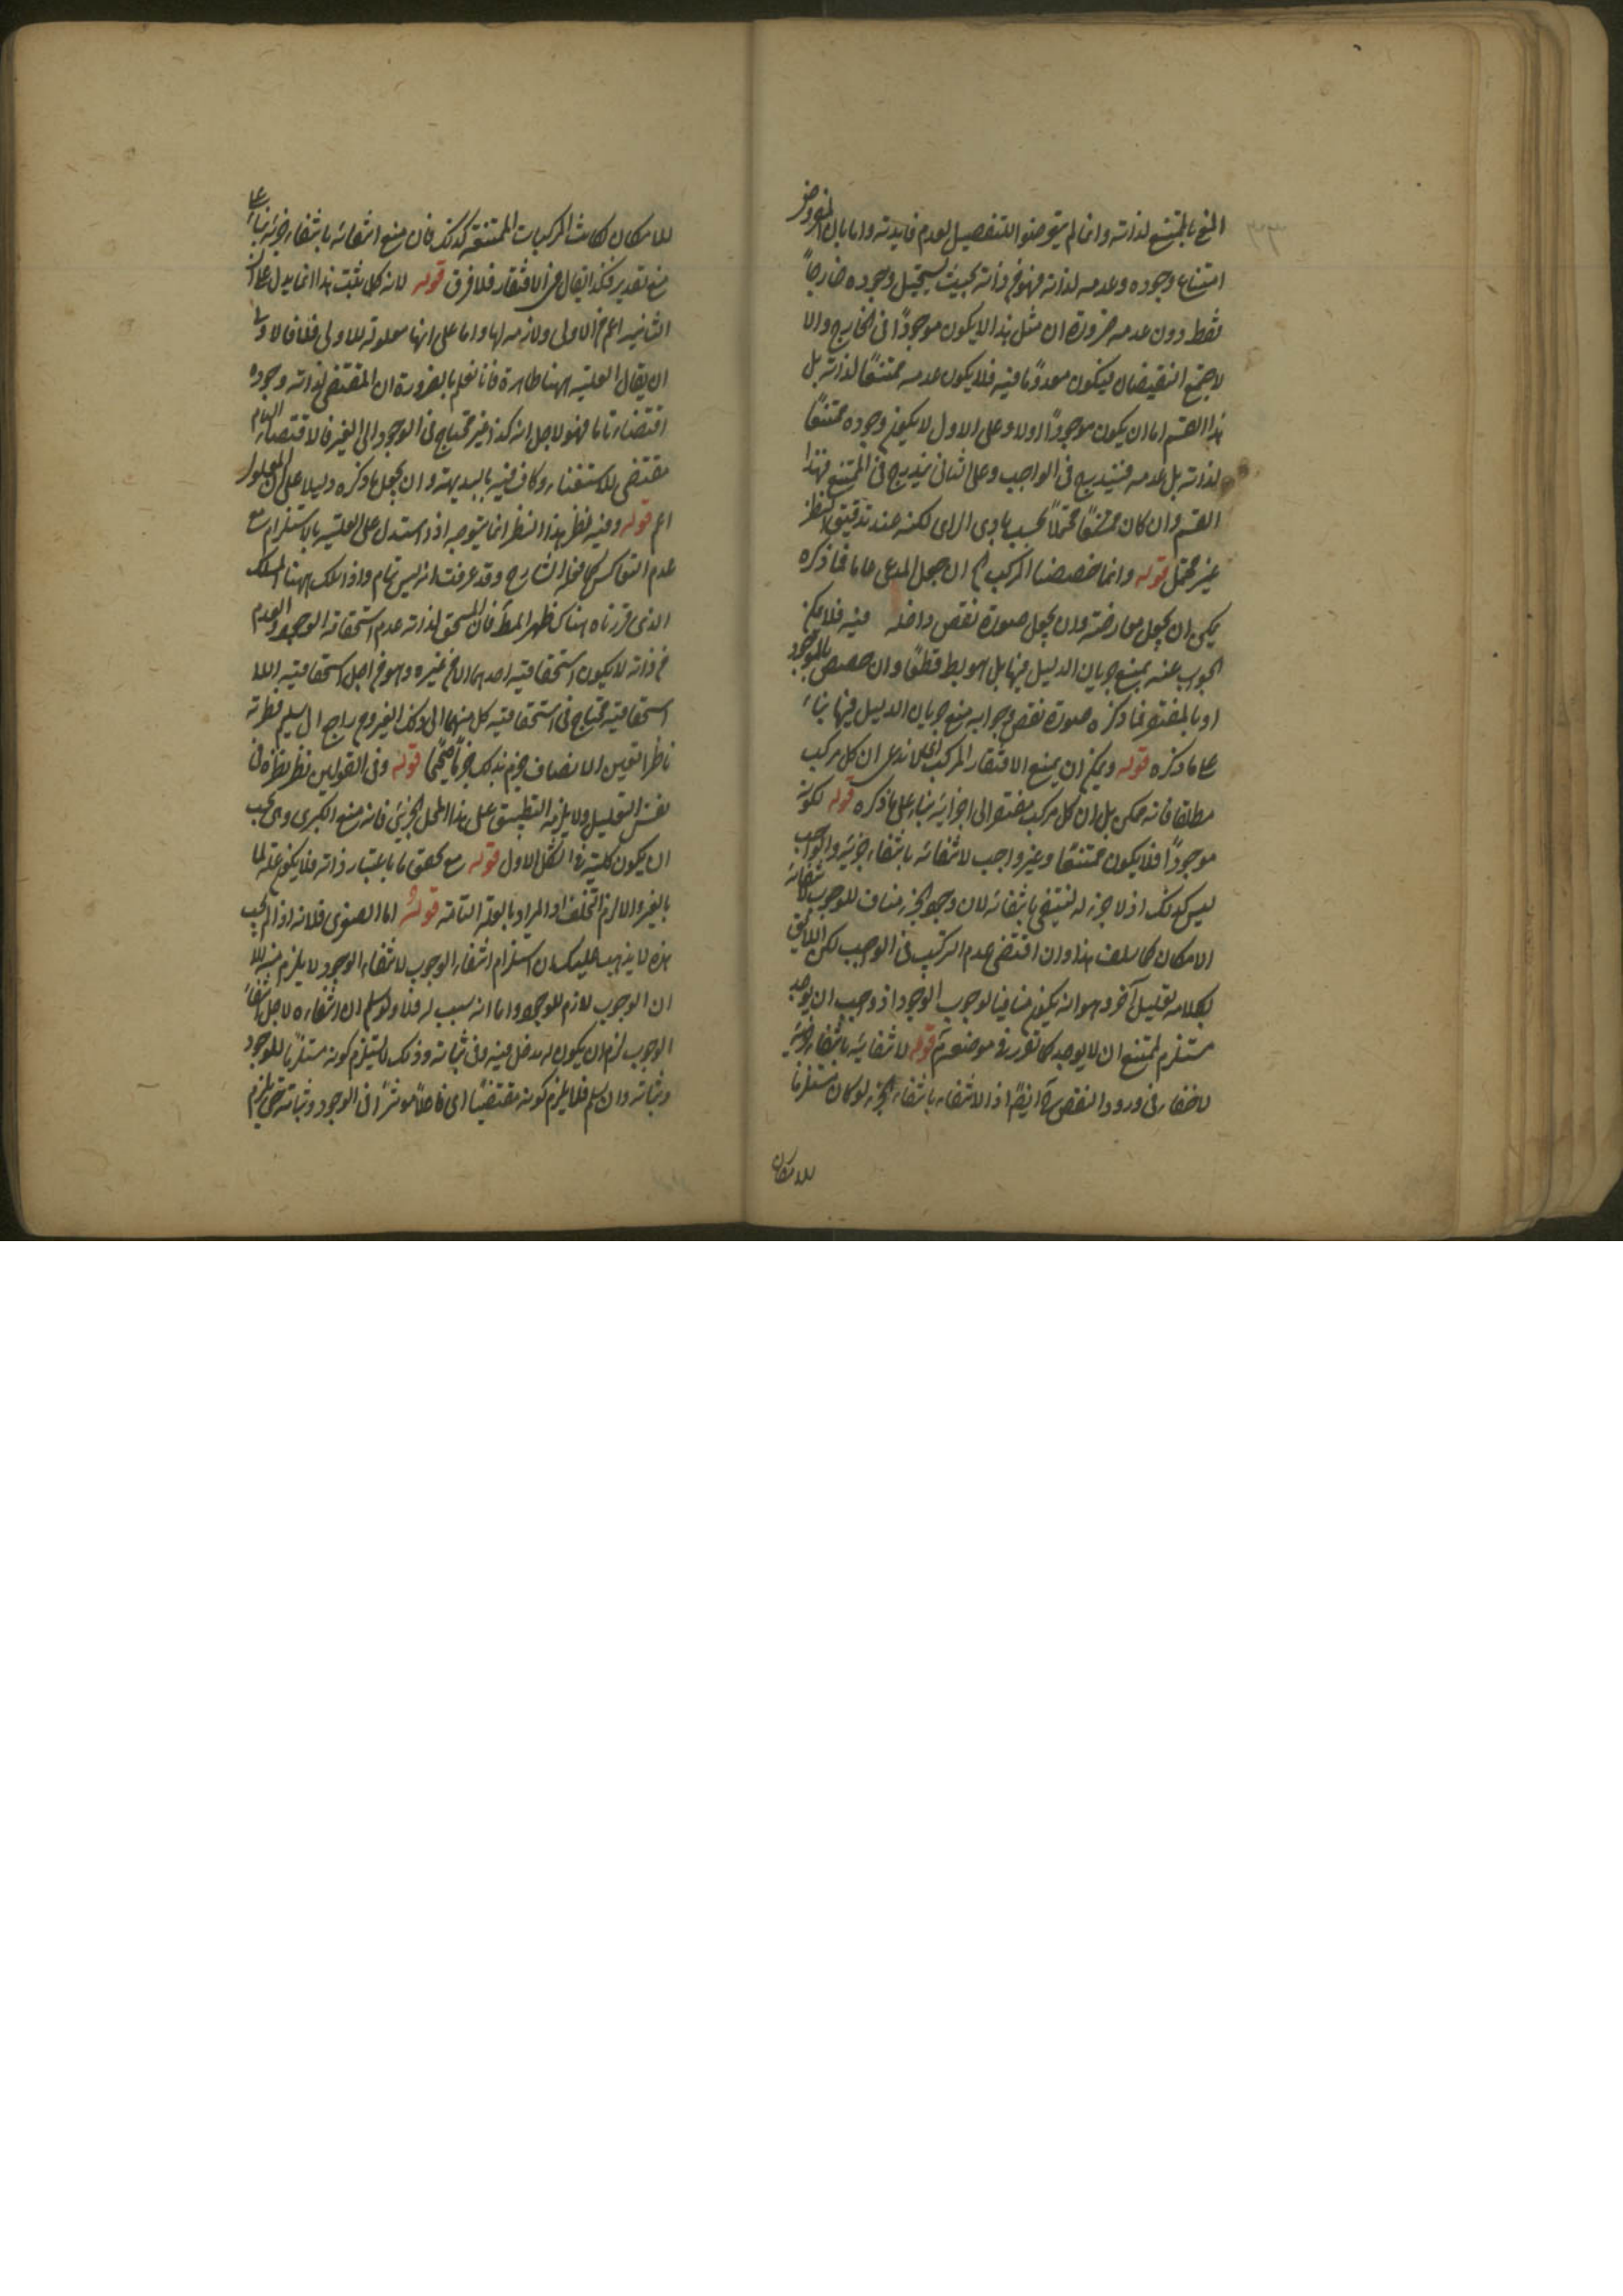 المنع بالممتنع لذاته وانما لم يتعرضوا للتفصيل لعدم فايدته واما بان المفروض
امتناع وجوده وعدمه لذاته فهو في ذاته بحيث يستحيل وجوده خارجاً
فقط دون عدمه ضرورة ان مثل هذا لا يكون موجودًا في الخارج والا
لاجتمع النقيضان فيكون معدومًا فيه فلا يكون عدمه ممتنعًا لذاته بل
هذا القسم اما ان يكون موجودًا اولا وعلى الاول لا يكون وجوده ممتنعًا
لذاته بل عدمه فيندرج في الواجب وعلى الثاني يندرج في الممتنع فهذا
القسم وان كان محتملاً بحسب بادى الراى لكنه عند تدقيق النظر
غير محتمل قوله وانما خصصنا المركب ان جعل المدعى عاما فما ذكره
يمكن ان يجعل معارضة وان يجعل صورة نقض داخله فيه فلا يمكن
الجواب عنه بمنع جريان الدليل فيها بل هو يط قطعًا وان خصص بالموجود
او بالمفتقر فما ذكره صورة نقض وجوابه منع جريان الدليل فيها بناءً
على ما ذكره قوله ويمكن ان يمنع الافتقار المركب اى لا ندعى ان كل مركب
مطلقا فانه ممكن بل ان كل مركب مفتقر الى اجزائه بناء على ما ذكره قوله لكونه
موجودًا فلا يكون ممتنعًا وغير واجب لانتفائه بانتفاء جزئه والواجب
ليس كذلك اذ لا جزء له لينتفي بانتفائه لان وجود الجزء مناف للوجوب لانتفائه
الامكان كما سلف هذا وان اقتضى عدم التركيب في الواجب لكن اللائق
بكلامه تعليل آخر وهو انه يكون منافيا لوجوب الوجود اذ وجب ان يوجد
مستلزم لممتنع ان لا يوجد كما تقرر في موضعه قوله لانتفائه بانتفاء جزئه
لا خفاء في ورود النقض ايضًا اذ الانتفاء بانتفاء الجزء لو كان مستلزما
للامكان
للامكان لكانت المركبات الممتنعة كذلك فان منع انتفائه بانتفاء جزئه بناءً على
منع تقدير فكذا يقال في الافتقار فلا فرق قوله لانه كل يثبت هذا انما يدل على ان
الثانيه اعم من الاولى ولازمه لها واما على انها معلولة للاولى فلا فالاولى
ان يقال العليه ههنا ظاهرة فانا نعلم بالضرورة ان المقتضى لذاته وجوده
اقتضاء تاما فهو لاجل انه كذا غير محتاج في الوجود الى الغير فالاقتضاء التام
مقتضى للاستغناء وكاف فيه بالبديهة وان يجعل ما ذكره دليلا على ان المعلول
اعم قوله وفيه نظر هذا النظر انما يتوجه اذا استدل على العليه بالاستلزام مع
عدم التعاكس كما فعله الشارح وقد عرفت انه ليس بتام واذا سلك ههنا المسلك
الذى قررناه هناك ظهر المط فان المستحق لذاته عدم استحقاقه الوجود والعدم
في ذاته لا يكون استحقاقيته احدهما الا من غيره وهو من اجل استحقاقيته اللا
استحقاقيه محتاج في استحقاقيته كل منهما الى ذلك الغير ومن راجع الى سليم فطرته
ناظرا بعين الانصاف جزم بذلك جزمًا حتمًا قوله وفي القولين نظر نظره في
نفس التعليل ولا يلزمه التطبيق على هذا المحل الجزئي فانه منع الكبرى وهى يجب
ان يكون كلية في الشكل الاول قوله مع تحقق ما باعتبار ذاته فلا يكون علة لما
بالغير والا لزم التخلف او المراد بالعلة التامة قوله اما الصغرى فلانه اذا لم يجب
هذه لا يذهب عليك ان استلزام انتفاء الوجوب لانتفاء الوجود لا يلزم منه الا
ان الوجوب لازم للوجود واما انه سبب له فلا ولو سلم ان انتفاءه لاجل انتفاء
الوجوب لزم ان يكون له مدخل فيه وفي ثباته وذلك لا يستلزم كونه مستلزما للوجود
وثباته وان سلم فلا يلزم كونه مقتضيًا اى فاعلاً موثرًا في الوجود وثباته حتى يلزم